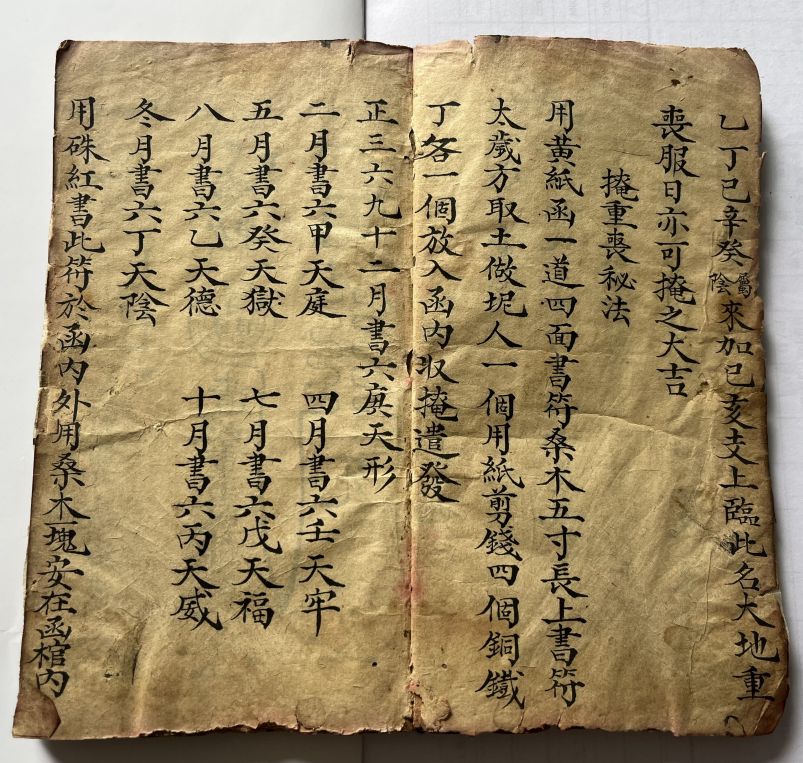 乙丁己辛癸屬陰來加已亥支上臨此名大地重
喪服日亦可掩之大吉
掩重喪秘法
用黃紙函一道四面書符桑木五寸長上書符
太歲方取土做坭人一個用紙剪錢四個銅鐵
丁各一個放入函内収掩遣發
正三六九十二月書六庚天形
二月書六甲天庭 四月書六壬天牢
五月書六癸天獄 七月書六戊天福
八月書六乙天德 十月書六丙天威
冬月書六丁天陰
用硃紅書此符於函内外用桑木一塊安在函棺内